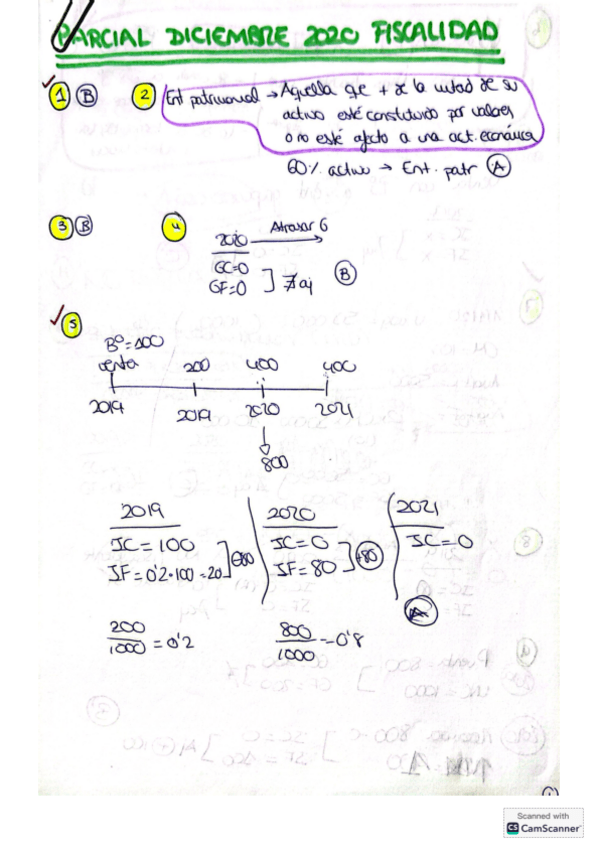 PARCIAL DICIEMBRE 2020 FISCALIDAD
1 B
2 Ent patrimonial → Aquella que + de la mitad de su
activo esté constituido por valores
o no esté afecto a una act. económica
60% activo → Ent. patr A
3 B
4 2020 Atrasar 6
GC=0
GF=0 ] ∄ aj B
5
Bº=100
venta 200 400 400
2019 2019 2020 2021
800
2019 2020 2021
IC=100 IC=0 IC=0
IF=0'2·100=20 ] -80 IF=80 ] +80
A
200/1000=0'2 800/1000=0'8
Scanned with
CS CamScanner